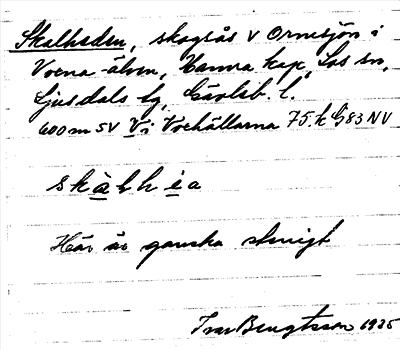 Skalheden, skogsås v Ornesjön i
Voxna-älven, Hamra kap, Los sn,
Ljusdals tg, Gävleb. l.
600 m SV V i Vrehällarna 75. k G 83 NV
skàlhèa
Här är ganska stenigt
Ivar Bengtsson 1935